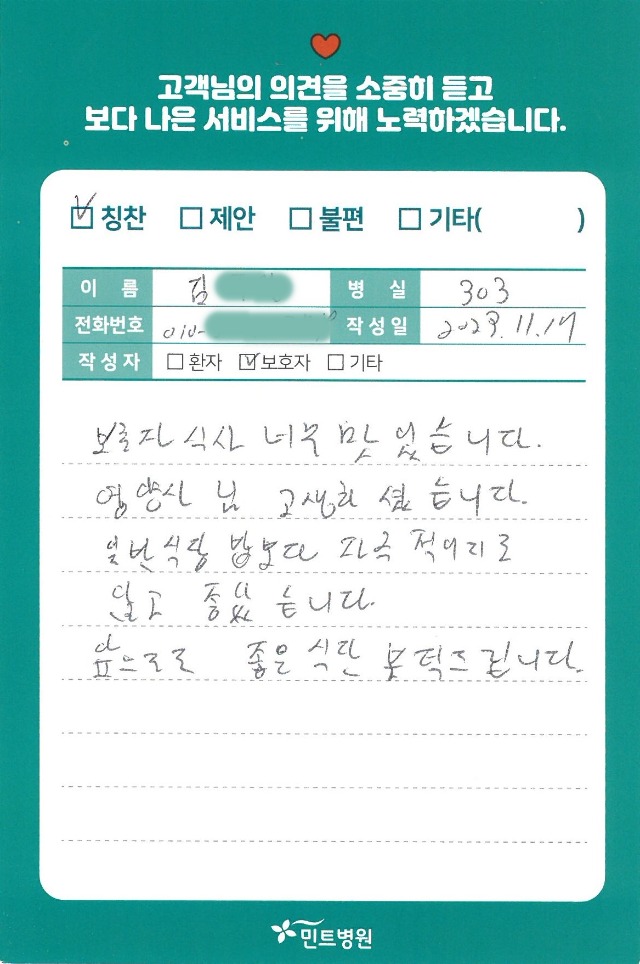 고객님의 의견을 소중히 듣고
보다 나은 서비스를 위해 노력하겠습니다.
칭찬 제안 불편 기타( )
이 름 김 병 실 303
전화번호 010- 작성일 2023.11.17
작성자 환자 보호자 기타
보호자 식사 너무 맛 있습니다.
영양사 님 고생하 셨습니다.
일반식당 밥보다
달고 좋았습니다.
앞으로로 좋은 식단 부탁드립니다.
민트병원